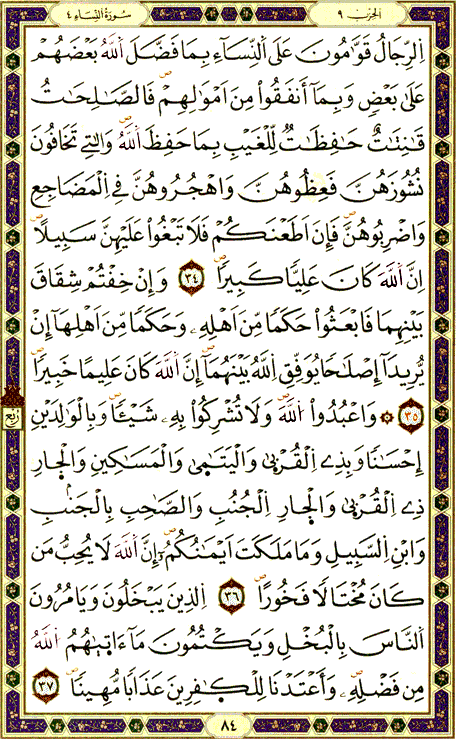 الحزب ٩
سورة النساء ٤
اِ۬لرِّجَالُ قَوَّٰمُونَ عَلَى اَ۬لنِّسَآءِ بِمَا فَضَّلَ اَ۬للَّهُ بَعْضَهُمْ
عَلَىٰ بَعْضٖ وَبِمَآ أَنفَقُواْ مِنَ اَمْوَٰلِهِمْۖ فَالصَّٰلِحَٰتُ
قَٰنِتَٰتٌ حَٰفِظَٰتٞ لِّلْغَيْبِ بِمَا حَفِظَ اَ۬للَّهُۖ وَالتِے تَخَافُونَ
نُشُوزَهُنَّ فَعِظُوهُنَّ وَاهْجُرُوهُنَّ فِے اِ۬لْمَضَاجِعِ
وَاضْرِبُوهُنَّۖ فَإِنَ اَطَعْنَكُمْ فَلَا تَبْغُواْ عَلَيْهِنَّ سَبِيلًاۖ
اِنَّ اَ۬للَّهَ كَانَ عَلِيّٗا كَبِيرٗاۖ ٣٤ وَإِنْ خِفْتُمْ شِقَاقَ
بَيْنِهِمَا فَابْعَثُواْ حَكَمٗا مِّنَ اَهْلِهِۦ وَحَكَمٗا مِّنَ اَهْلِهَآ إِنْ
يُّرِيدَآ إِصْلَٰحٗا يُوَفِّقِ اِ۬للَّهُ بَيْنَهُمَآۖ إِنَّ اَ۬للَّهَ كَانَ عَلِيماً خَبِيرٗاۖ
٣٥ ۞ وَاعْبُدُواْ اُ۬للَّهَ وَلَا تُشْرِكُواْ بِهِۦ شَيْـٔٗاۖ وَبِالْوَٰلِدَيْنِ
ربع
إِحْسَٰنٗا وَبِذِے اِ۬لْقُرْبَىٰ وَالْيَتَٰمَىٰ وَالْمَسَٰكِينِ وَالْجَارِ
ذِے اِ۬لْقُرْبَىٰ وَالْجَارِ اِ۬لْجُنُبِ وَالصَّاحِبِ بِالْجَنۢبِ
وَابْنِ اِ۬لسَّبِيلِ وَمَا مَلَكَتَ اَيْمَٰنُكُمُۥٓۖ إِنَّ اَ۬للَّهَ لَا يُحِبُّ مَن
كَانَ مُخْتَالٗا فَخُورًاۖ ٣٦ اِ۬لذِينَ يَبْخَلُونَ وَيَامُرُونَ
اَ۬لنَّاسَ بِالْبُخْلِ وَيَكْتُمُونَ مَآ ءَاتَىٰهُمُ اُ۬للَّهُ
مِن فَضْلِهِۦۖ وَأَعْتَدْنَا لِلْكٰ۪فِرِينَ عَذَابٗا مُّهِينٗاۖ ٣٧
٨٤